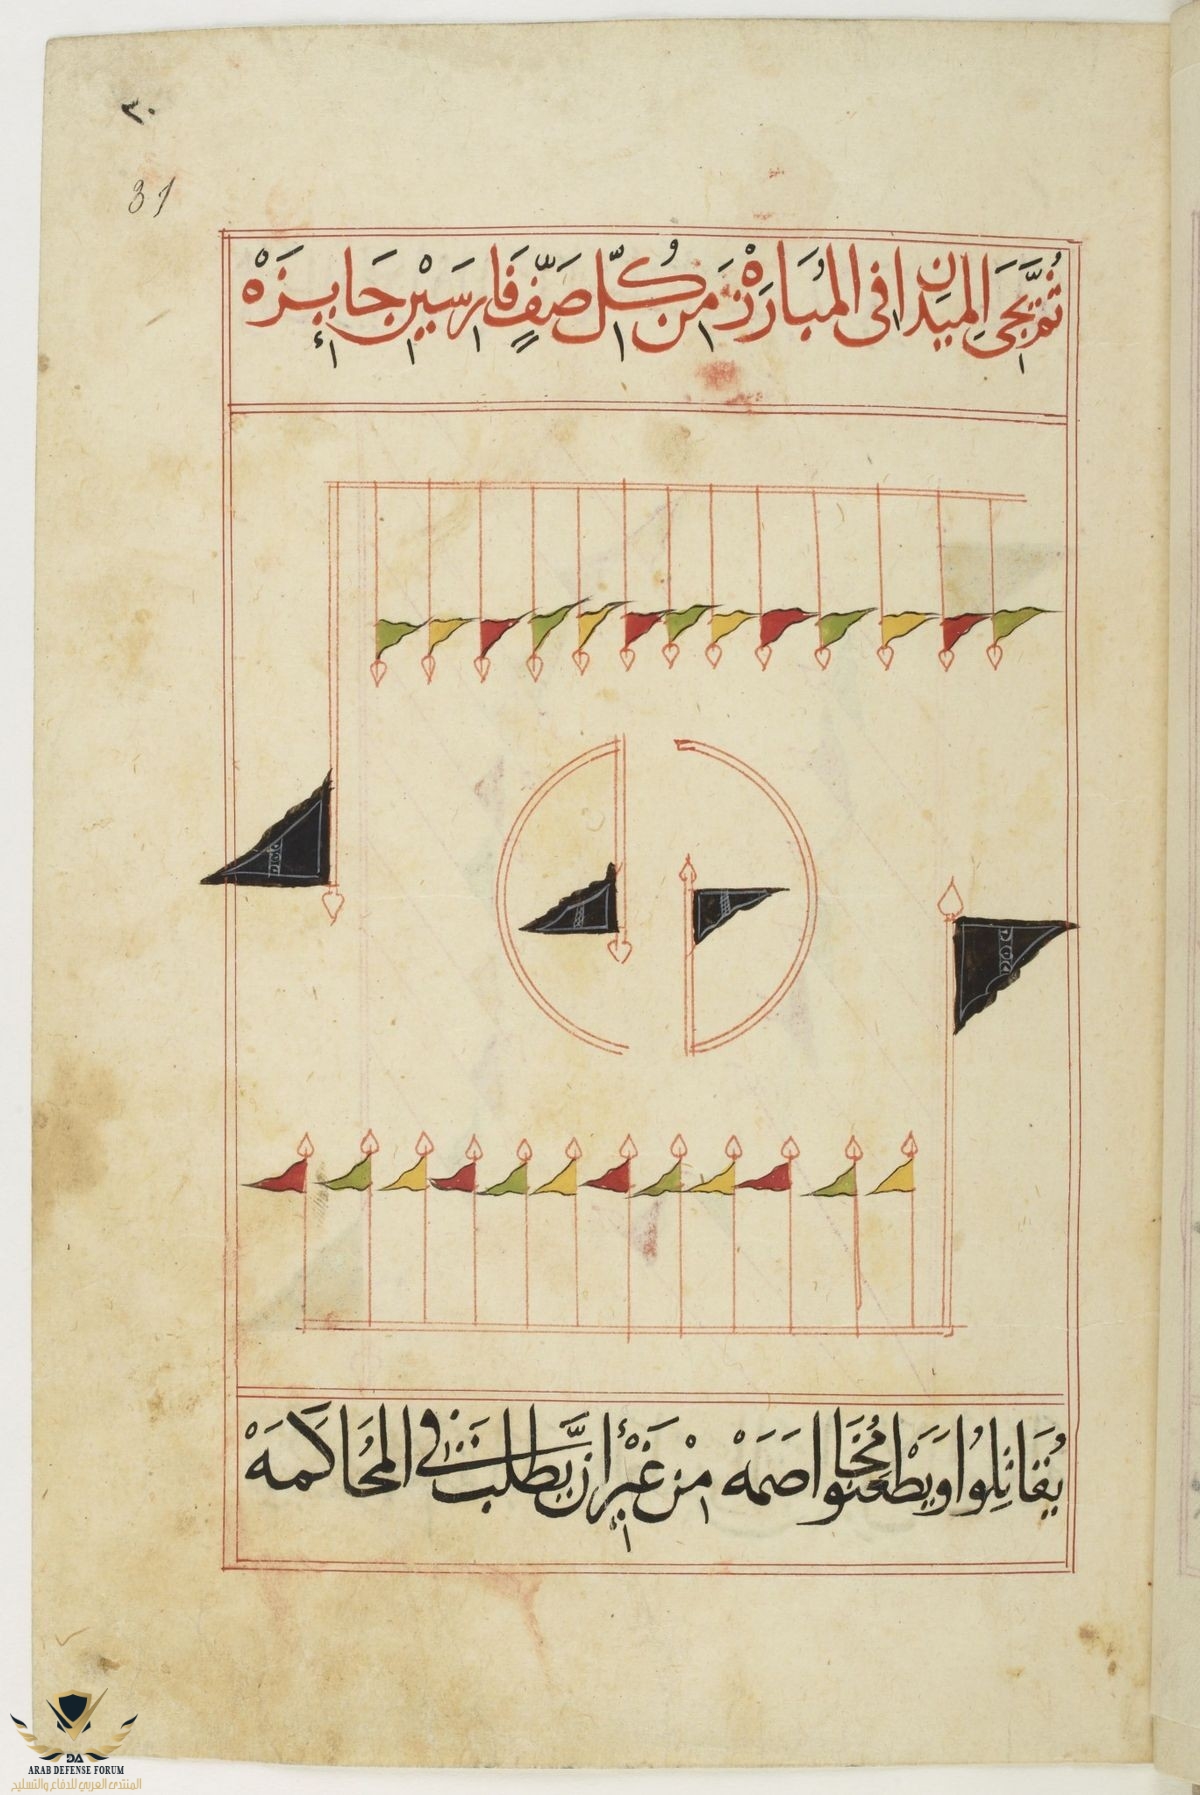 ٣٠
31
ثُمَّ يَجِى الميَدان فى المُبَارَزَه مِنْ كُلِّ صَفٍّ فَارسَيْن جَايزَهْ
يُقَاتِلُوا وَيَطْعَنُوا مُخَاصَمَهْ مِنْ غَيْرِ ان يَطَّلبَ فى المُحَاكَمَهْ
ARAB DEFENSE FORUM
المنتدى العربي للدفاع والتسليح